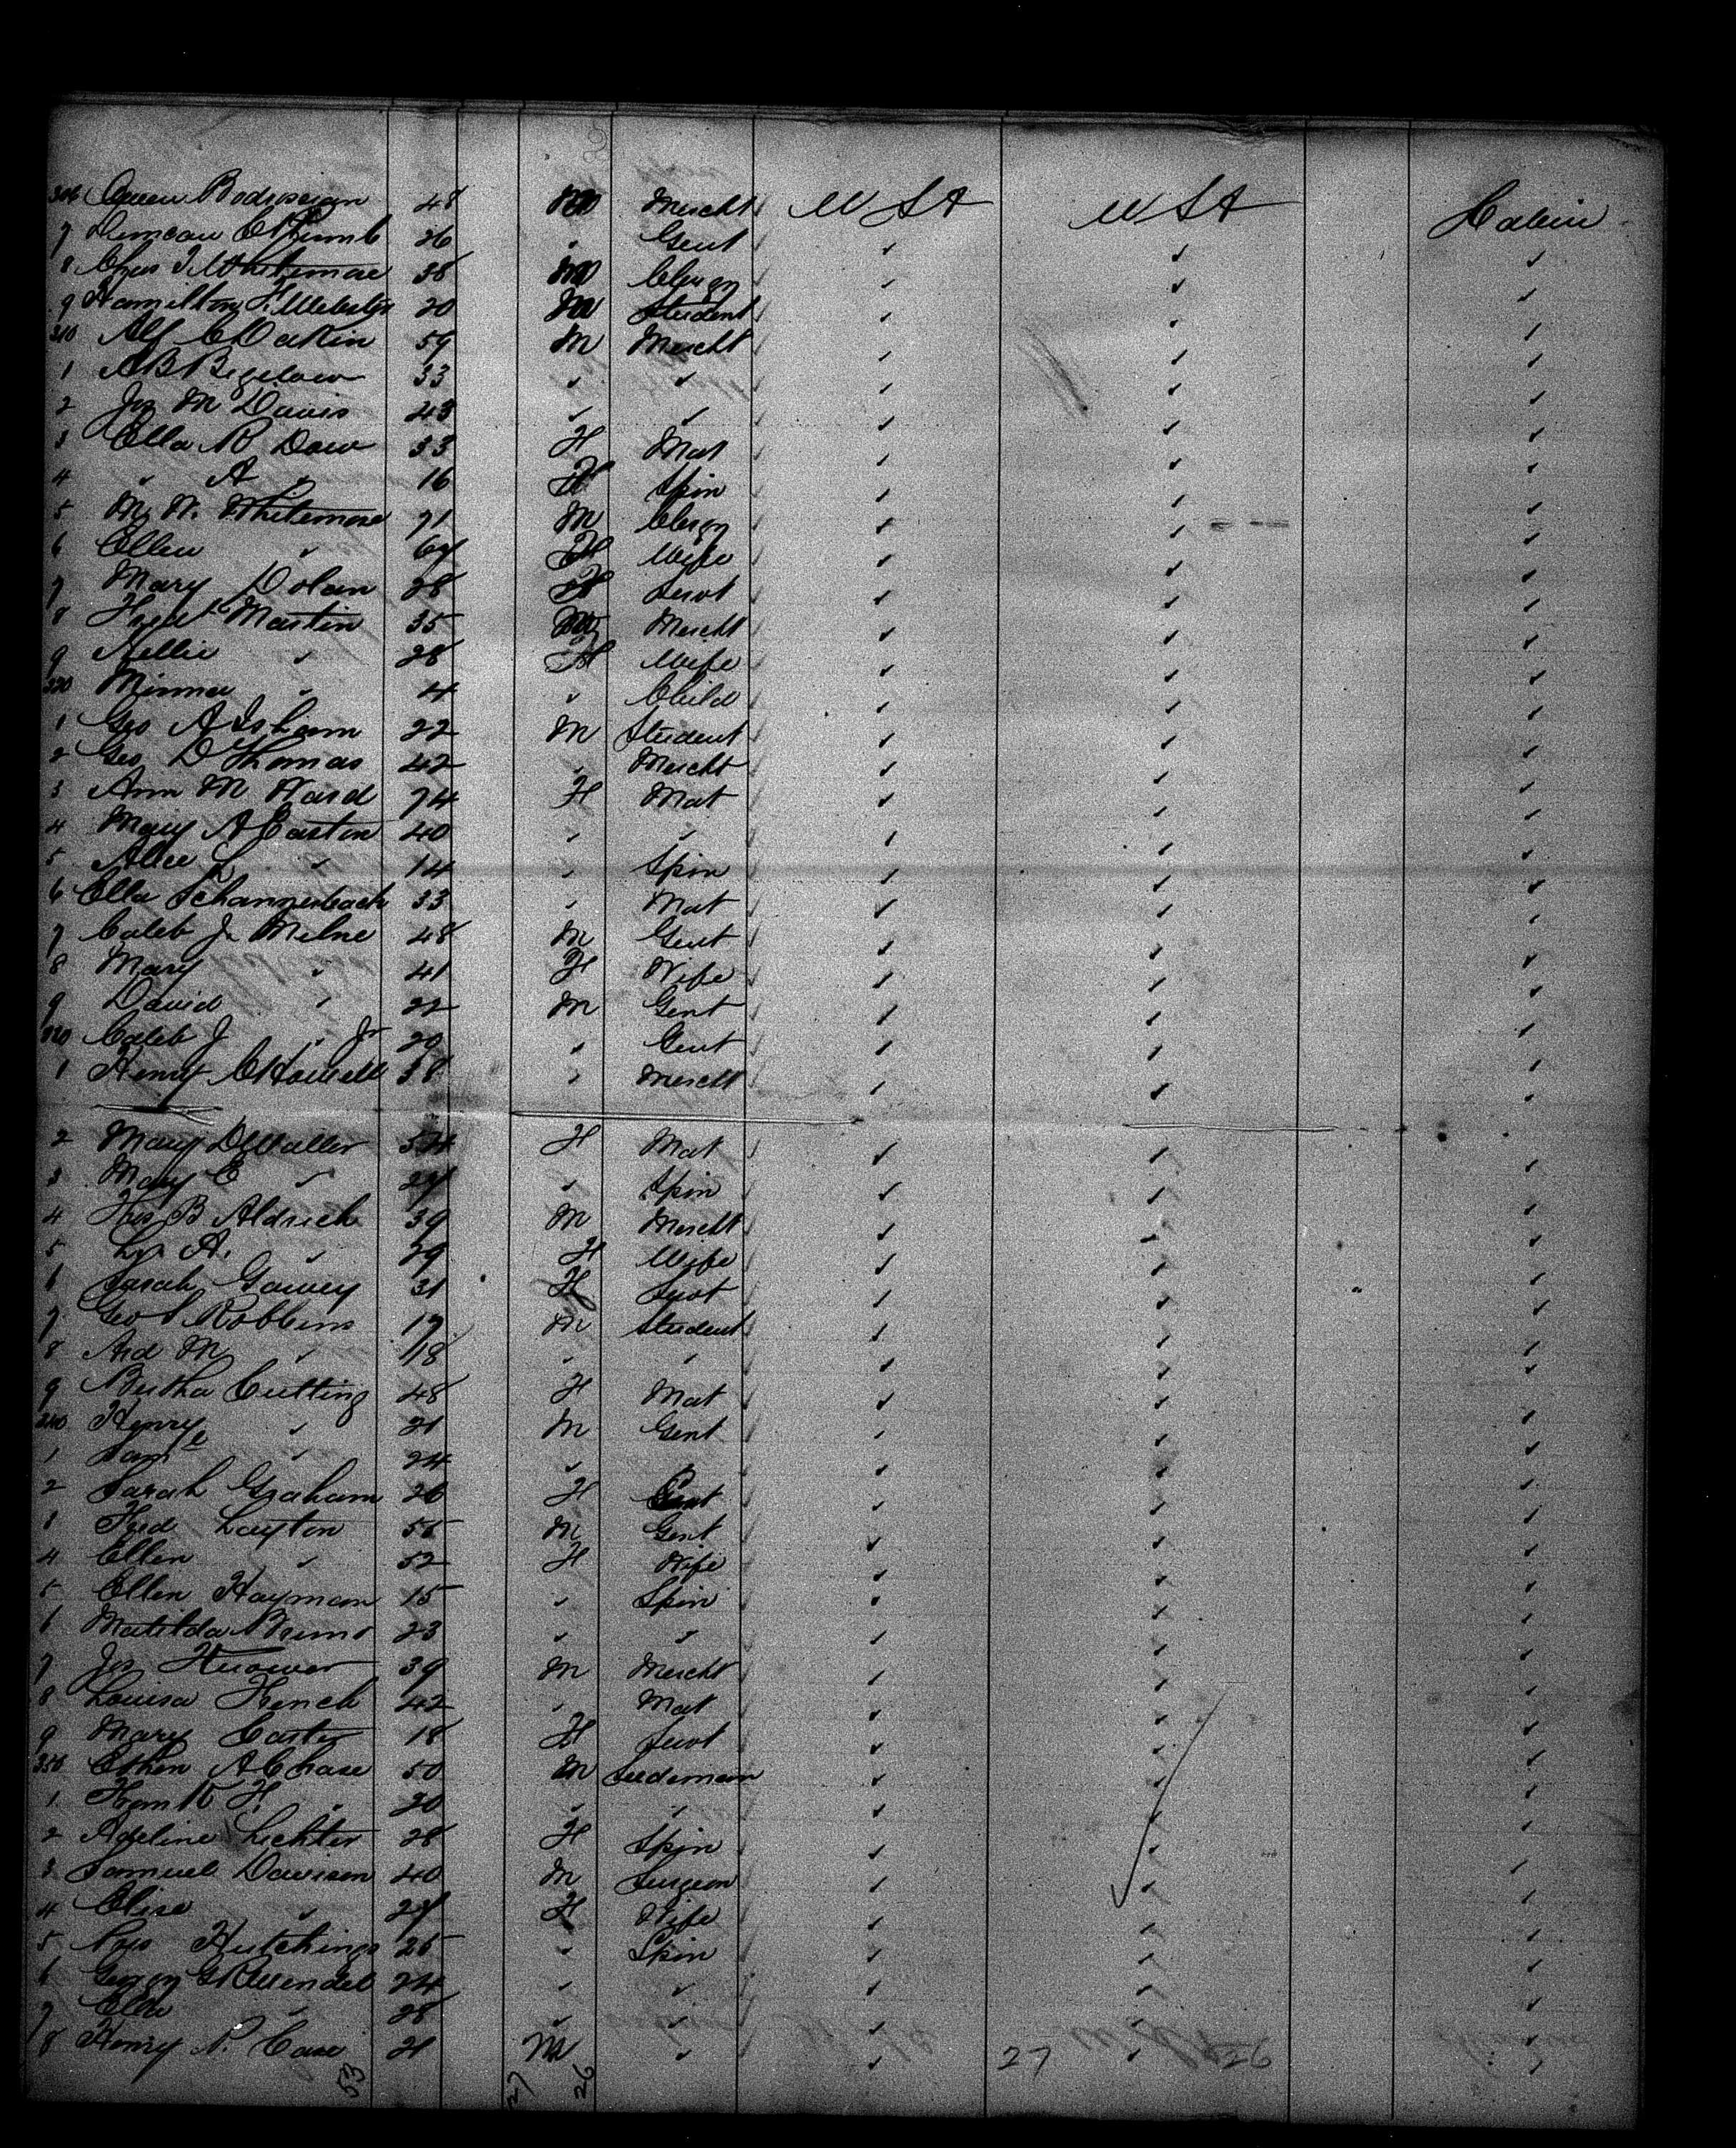 306 48 M Mercht U St U St Cabin
7 Duncan 26 " Gent ✓ ✓ ✓
8 Chas J Whitemore 38 M Clergy ✓ ✓ ✓
9 Hamilton F. Webster 20 M Student ✓ ✓ ✓
310 Alf C Dakin 59 M Mercht ✓ ✓ ✓
1 A B Bigelow 33 " " ✓ ✓ ✓
2 Jos M Davis 43 " " ✓ ✓ ✓
3 Ella R Dow 53 F Mat ✓ ✓ ✓
4 " A " 16 F Spin ✓ ✓ ✓
5 M. W. Whitemore 71 M Clergy ✓ ✓ ✓
6 Ellen " F Wife ✓ ✓ ✓
7 Mary Dolan 28 F Servt ✓ ✓ ✓
8 Fredk Martin 35 M Mercht ✓ ✓ ✓
9 Nellie " 28 F Wife ✓ ✓ ✓
320 " 4 " Child ✓ ✓ ✓
1 Geo A Isham 22 M Student ✓ ✓ ✓
2 Geo D Thomas 42 " Mercht ✓ ✓ ✓
3 Ann M Ward 74 F Mat ✓ ✓ ✓
4 Mary A Easton 40 " " ✓ ✓ ✓
5 Alice L " 14 " Spin ✓ ✓ ✓
6 Ella 33 " Mat ✓ ✓ ✓
7 Caleb J Milne 48 M Gent ✓ ✓ ✓
8 Mary " 41 F Wife ✓ ✓ ✓
9 David " 22 M Gent ✓ ✓ ✓
Caleb J " Jr 20 " Gent ✓ ✓ ✓
1 Henry C Howell 38 " Mercht ✓ ✓ ✓
2 Mary D Waller 54 F Mat ✓ ✓ ✓
3 Mary E " " Spin ✓ ✓ ✓
4 Thos B Aldrich 39 M Mercht ✓ ✓ ✓
5 A. " 39 F Wife ✓ ✓ ✓
6 Sarah 31 F Servt ✓ ✓ ✓
7 Geo Robbins 17 M Student ✓ ✓ ✓
8 M " 18 " " ✓ ✓ ✓
9 Bertha Cutting 48 F Mat ✓ ✓ ✓
340 Henry " 21 M Gent ✓ ✓ ✓
1 Saml " 24 " " ✓ ✓ ✓
2 Sarah Graham 26 F ✓ ✓ ✓
3 Fred Layton 55 M Gent ✓ ✓ ✓
4 Ellen " 52 F Wife ✓ ✓ ✓
5 Ellen Hayman 15 " Spin ✓ ✓ ✓
6 Matilda 23 " " ✓ ✓ ✓
7 Jos 39 M Mercht ✓ ✓ ✓
8 Louisa French 42 " Mat ✓ ✓ ✓
9 Mary Carter 18 F Servt ✓ ✓ ✓
350 A Chase 50 M Seedsman ✓ ✓ ✓
1 Frank H. " 20 " " ✓ ✓ ✓
2 Adeline Lichter 28 F Spin ✓ ✓ ✓
3 Samuel Davison 40 M Surgeon ✓ ✓ ✓
4 Elise " F Wife ✓ ✓ ✓
5 Hutchings 25 " Spin ✓ ✓ ✓
6 24 " " ✓ ✓ ✓
7 Ella " 28 " " ✓ ✓ ✓
8 Henry P. Case 21 M " ✓ ✓ ✓
53 27 26 27 26